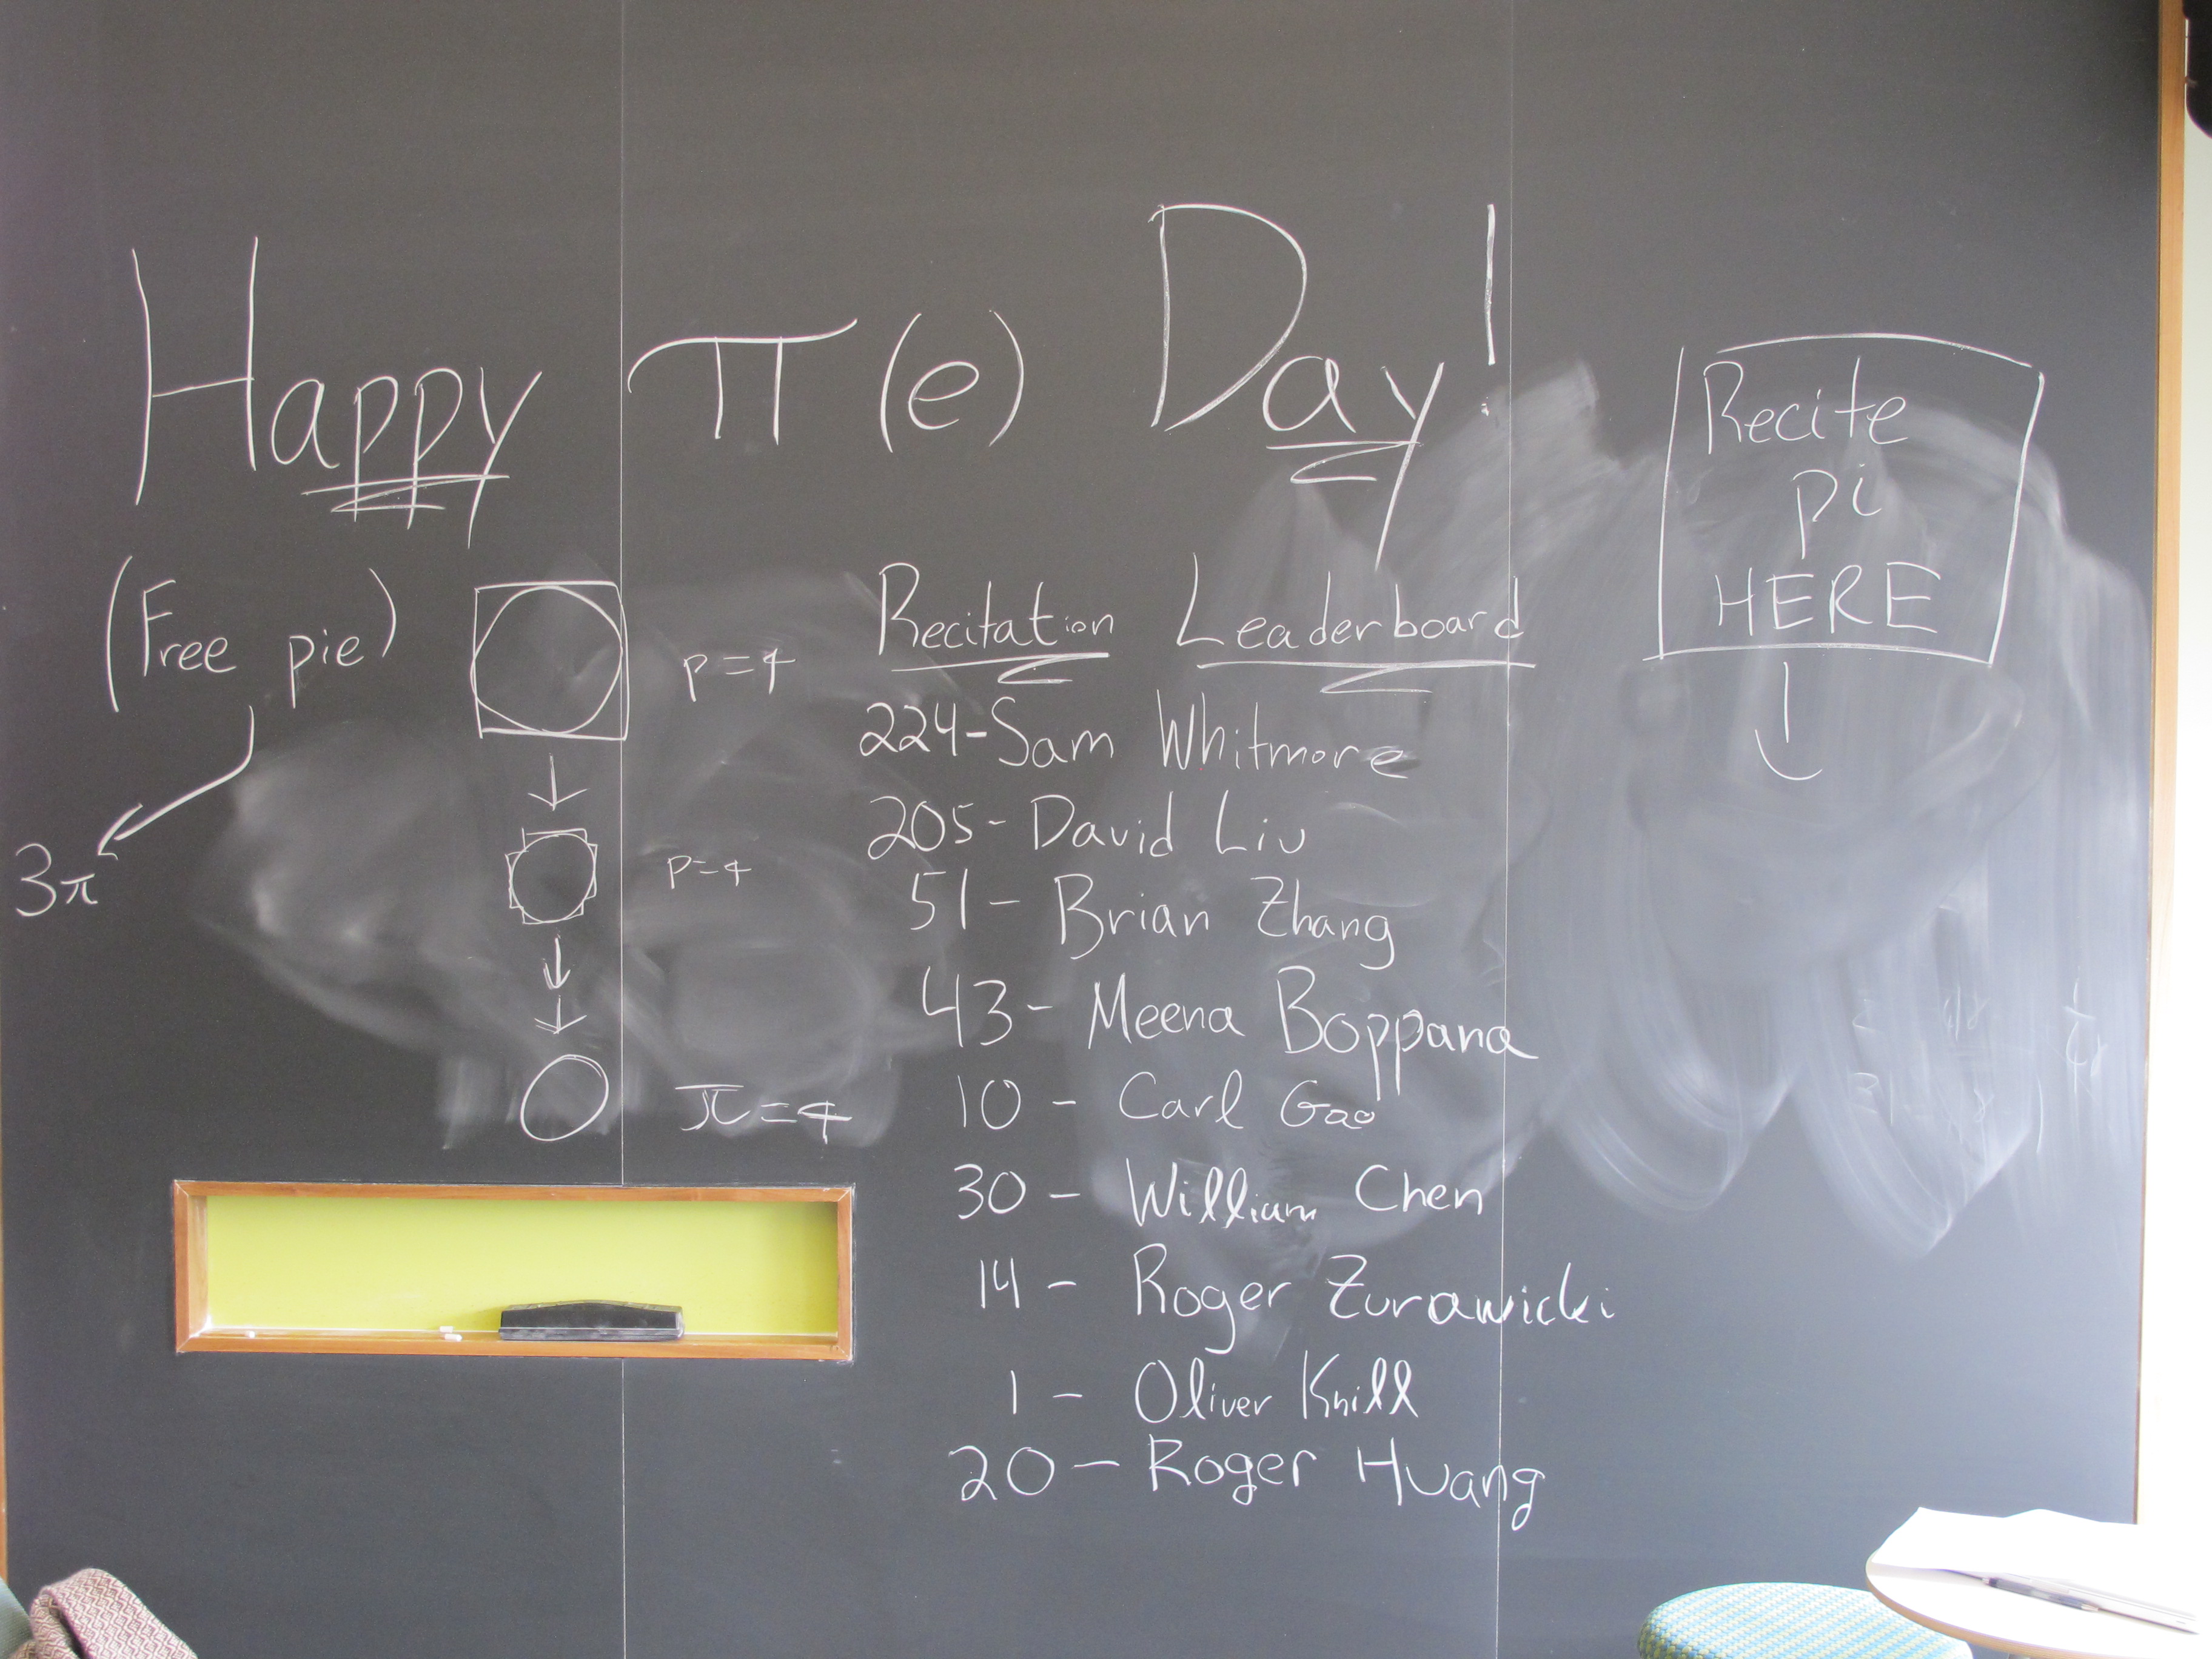 Happy π(e) Day!
(Free pie)
3π
p=4
p=4
π=4
Recitation Leaderboard
224-Sam Whitmore
205- David Liu
51- Brian Zhang
43- Meena Boppana
10 - Carl Gao
30 - William Chen
14 - Roger Zurawicki
1 - Oliver Knill
20 - Roger Huang
Recite
pi
HERE